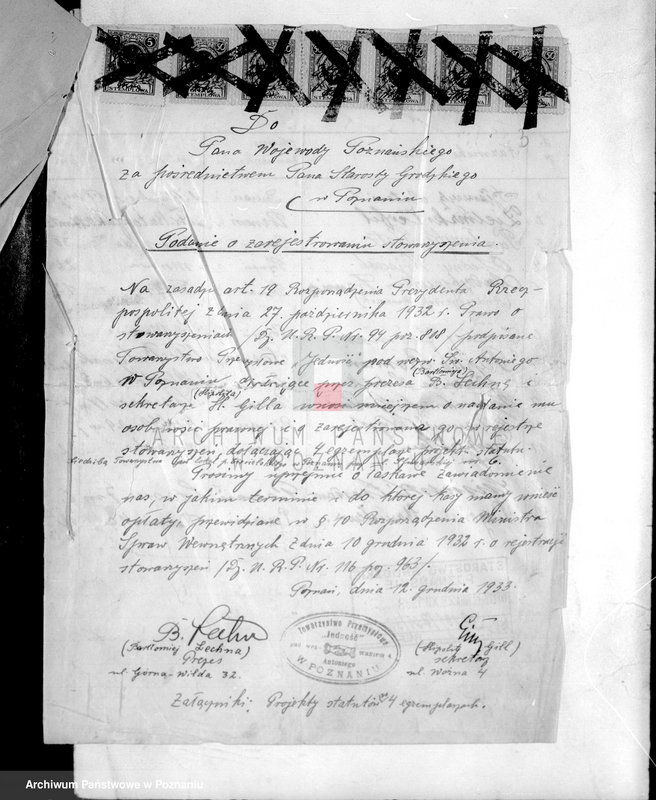 Do
Pana Wojewody Poznańskiego
za pośrednictwem Pana Starosty Grodzkiego
w Poznaniu
Podanie o zarejestrowaniu stowarzyszenia.
Na zasadzie art. 19 Rozporządzenia Prezydenta Rzeczy-
pospolitej z dnia 27. października 1932 r. Prawo o
stowarzyszeniach /Dz. U. R. P. Nr. 94 poz. 808/ podpisane
Towarzystwo Przemysłowe "Jedność" pod wezw. Św. Antoniego
(Bartłomieja)
w Poznaniu przez prezesa B. Lechnę i
(Hipolita)
sekretarza H. Gilla wnosi niniejszem o nadanie mu
osobowości prawnej i o zarejestrowanie go w rejestrze
stowarzyszeń, dołączając 4 egzemplarze projektu statutu.
Siedziba Towarzystwa w Poznaniu przy nr. 6.
Prosimy uprzejmie o łaskawe zawiadomienie
nas, w jakim terminie i do której kasy mamy wnieść
opłaty, przewidziane w § 10 Rozporządzenia Ministra
Spraw Wewnętrznych z dnia 10 grudnia 1932 r. o rejestracji
stowarzyszeń /Dz. U. R. P. Nr. 116 poz. 963/.
Poznań, dnia 12. grudnia 1933.
B. Lechna
(Bartłomiej Lechna)
Prezes
ul. Górna-Wilda 32.
Towarzystwo Przemysłowe
"Jedność"
pod wezw. świętego
Antoniego
W POZNANIU
(Hipolit Gill)
sekretarz
ul. Woźna 4
Załączniki: Projekty statutów w 4 egzemplarzach.
ARCHIWUM PAŃSTWOWE
W POZNANIU
Archiwum Państwowe w Poznaniu